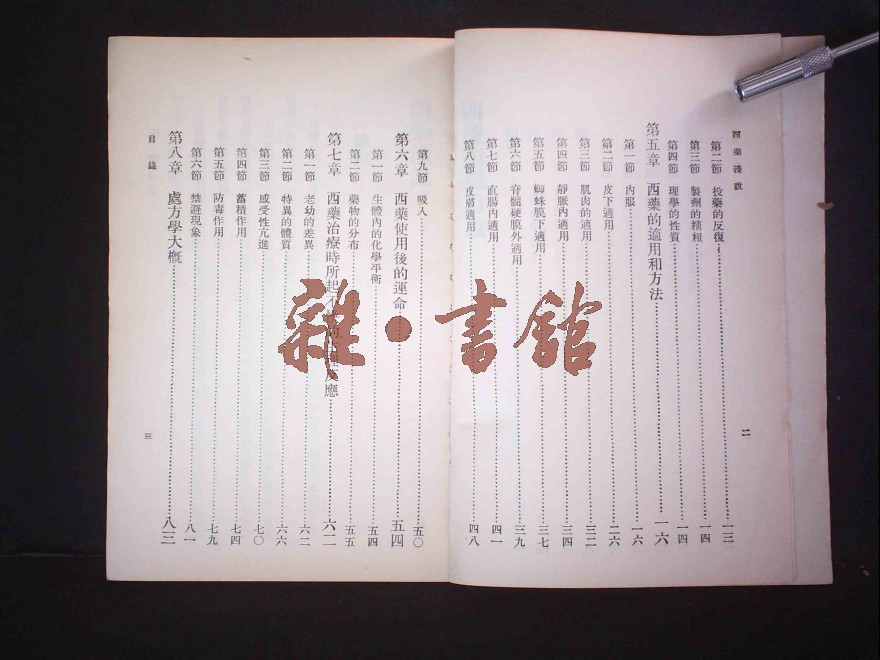 西藥淺說
二
第二節 投藥的反復……一三
第三節 製劑的精粗……一四
第四節 理學的性質……一四
第五章 西藥的適用和方法……一六
第一節 內服……一六
第二節 皮下適用……二六
第三節 肌肉的適用……三二
第四節 靜脈內適用……三四
第五節 蜘蛛膜下適用……三七
第六節 脊髓硬膜外適用……三九
第七節 直腸內適用……四一
第八節 皮膚適用……四八
第九節 吸入……五〇
第六章 西藥使用後的運命……五四
第一節 生體內的化學平衡……五四
第二節 藥物的分布……五五
第七章 西藥治療時所起不反應……六二
第一節 老幼的差異……六二
第二節 特異的體質……六六
第三節 感受性亢進……七〇
第四節 蓄積作用……七四
第五節 防毒作用……七九
第六節 禁避現象……八一
第八章 處方學大概……八三
目錄
三
雜·書館